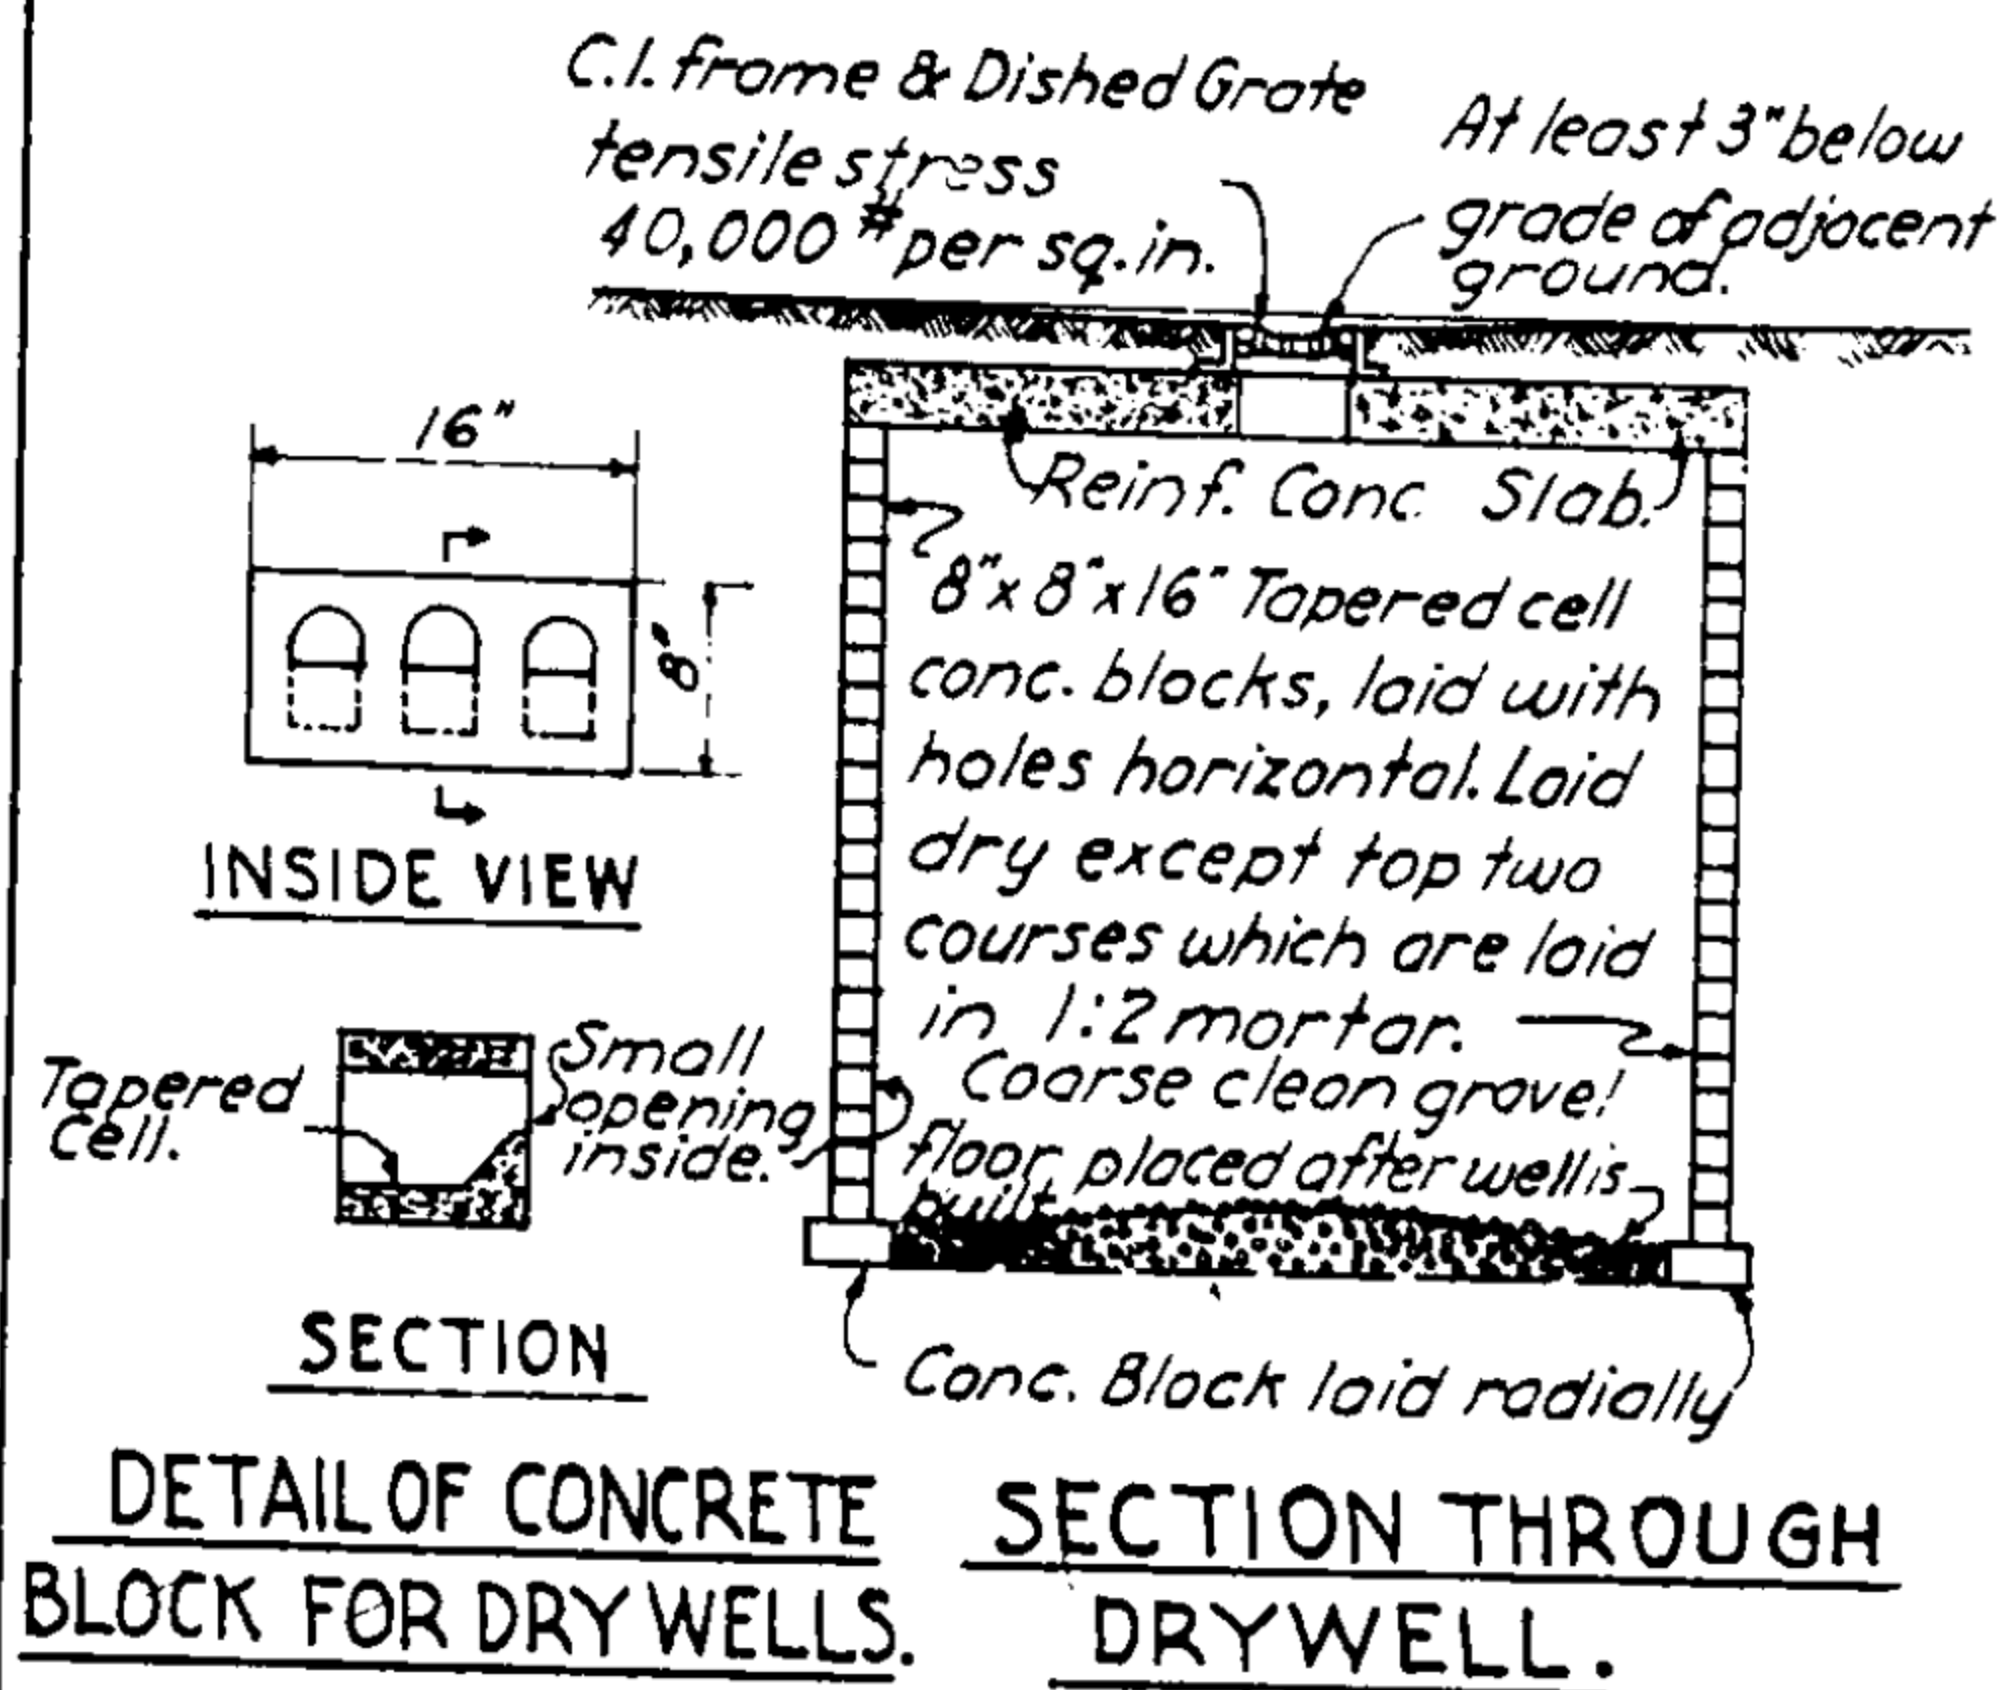 C.I. frame & Dished Grate
tensile stress
40,000 # per sq. in.
At least 3" below
grade of adjacent
ground.
16"
8"
INSIDE VIEW
Reinf. Conc. Slab.
8"x 8"x 16" Tapered cell
conc. blocks, laid with
holes horizontal. Laid
dry except top two
courses which are laid
in 1:2 mortar.
Coarse clean gravel
floor, placed after well is
built
Tapered
Cell.
Small
opening
inside.
SECTION
Conc. Block laid radially
DETAIL OF CONCRETE
BLOCK FOR DRY WELLS.
SECTION THROUGH
DRYWELL.